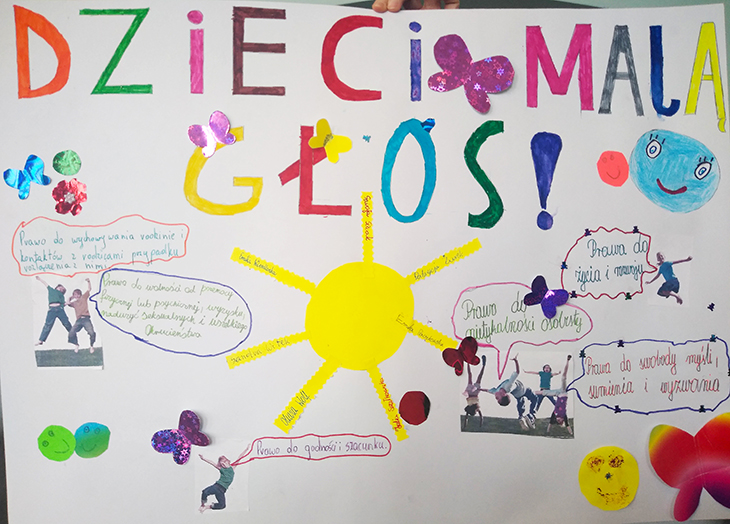 DZIECI MAJĄ
GŁOS!
Prawo do wychowywania rodzinie i
kontaktów z rodzicami przypadku
rozłączenia z nimi
Prawo do wolności od przemocy
fizycznej lub psychicznej, wyzysku,
nadużyć seksualnych i wszelkiego
okrucieństwa
Prawo do
nietykalności osobistej
Prawa do
życia i rozwoju
Prawa do swobody myśli,
sumienia i wyznania
Prawo do godności i szacunku.